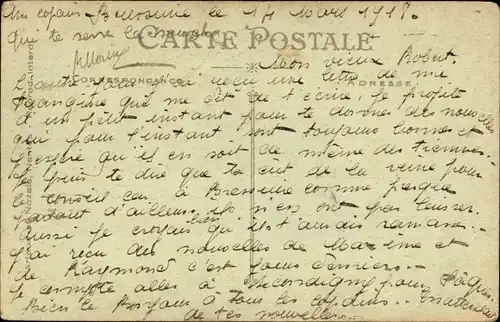 Un copain Bressuire le 14 Mars 1918.
qui te serre la
CARTE POSTALE
Mon vieux Robert.
CORRESPONDANCE
ADRESSE
L'autre jour j'ai reçu une lettre de me
me dit de t'écrire, je profite
d'un petit instant pour te donner des nouvelles
qui pour l'instant sont toujours bonnes et
j'espère qu'il en soit de même des tiennes.
Je puis te dire que tu as eut de la veine pour
le conseil car à Bressuire comme presque
partout d'ailleurs ils n'en ont pas laisser.
Aussi je croyais bien qu'ils t'aurais ramasser.
J'ai reçu des nouvelles de Maxime et
de Raymond c'est jours derniers.
Je compte aller à Secondigny pour Pâques
Bien le Bonjour à tous les copains. En attendant
de tes nouvelles